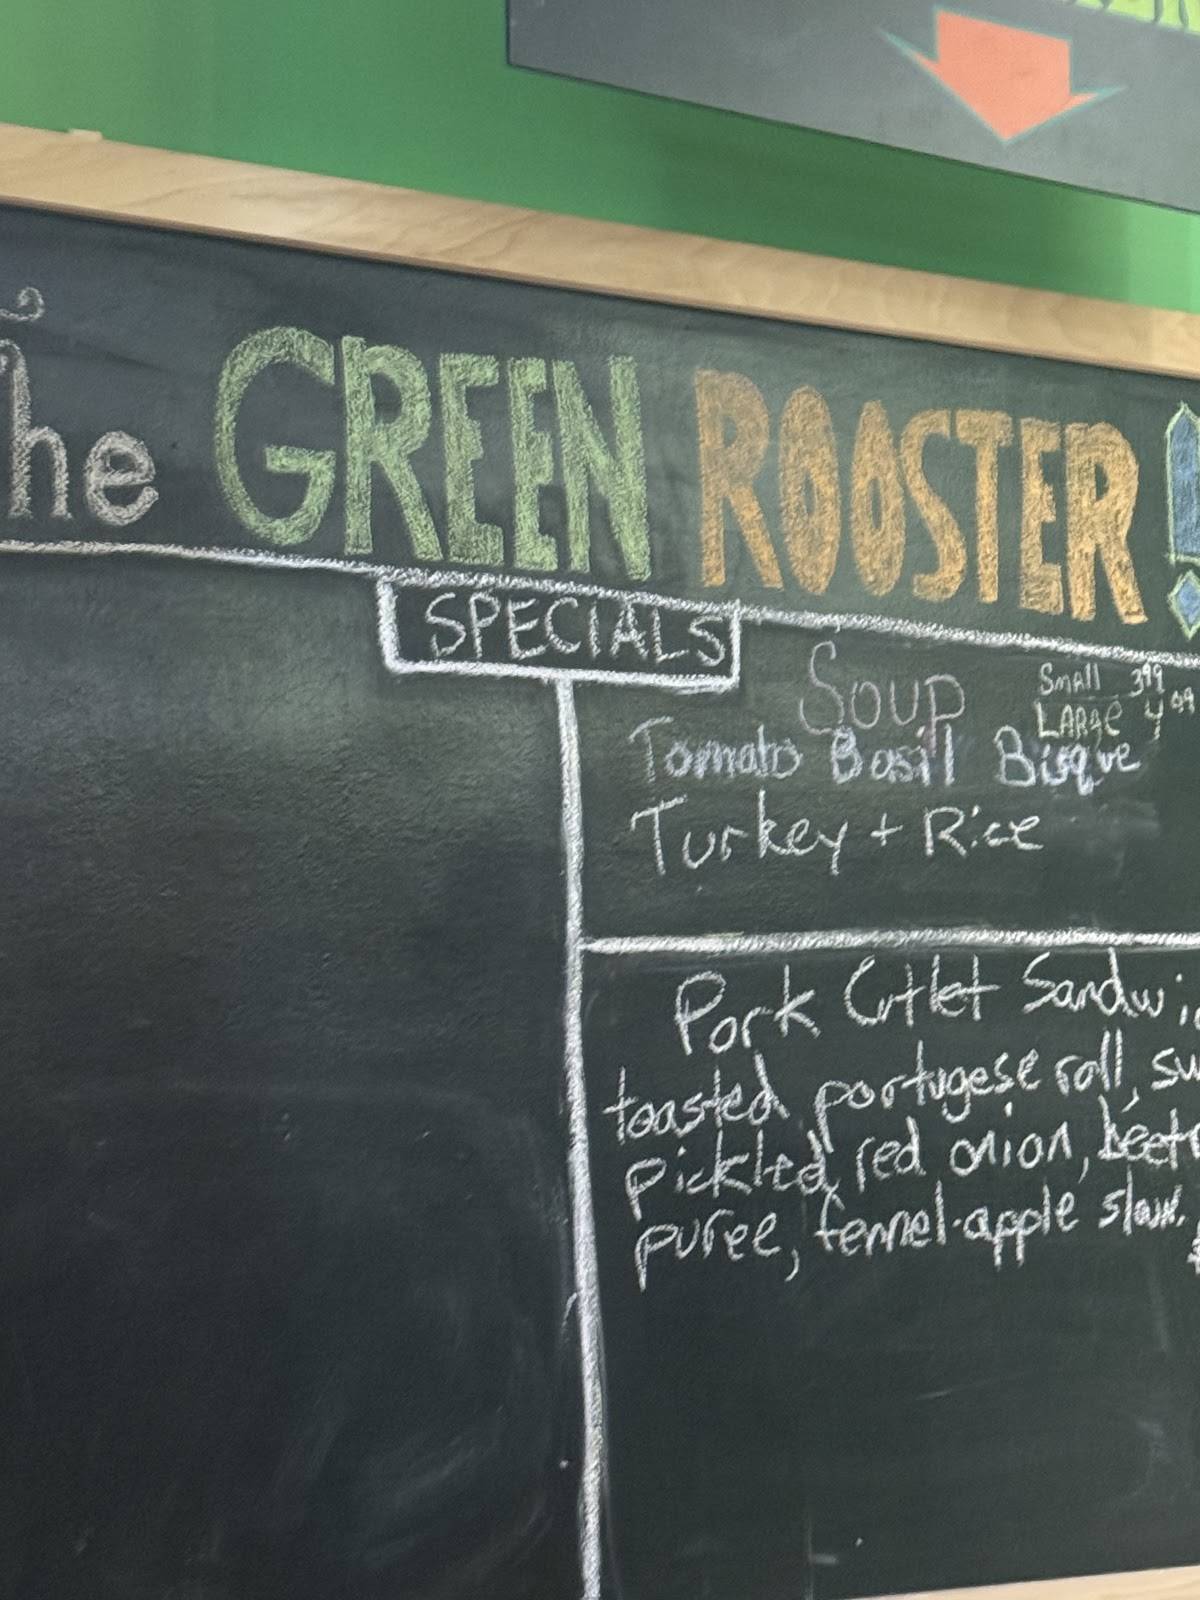 he GREEN ROOSTER!
SPECIALS
Soup
Small 3.99
LARGE 4.99
Tomato Basil Bisque
Turkey + Rice
Pork Cutlet Sandwic
toasted portugese roll, sw
pickled red onion, beet
puree, fennel-apple slaw.
$